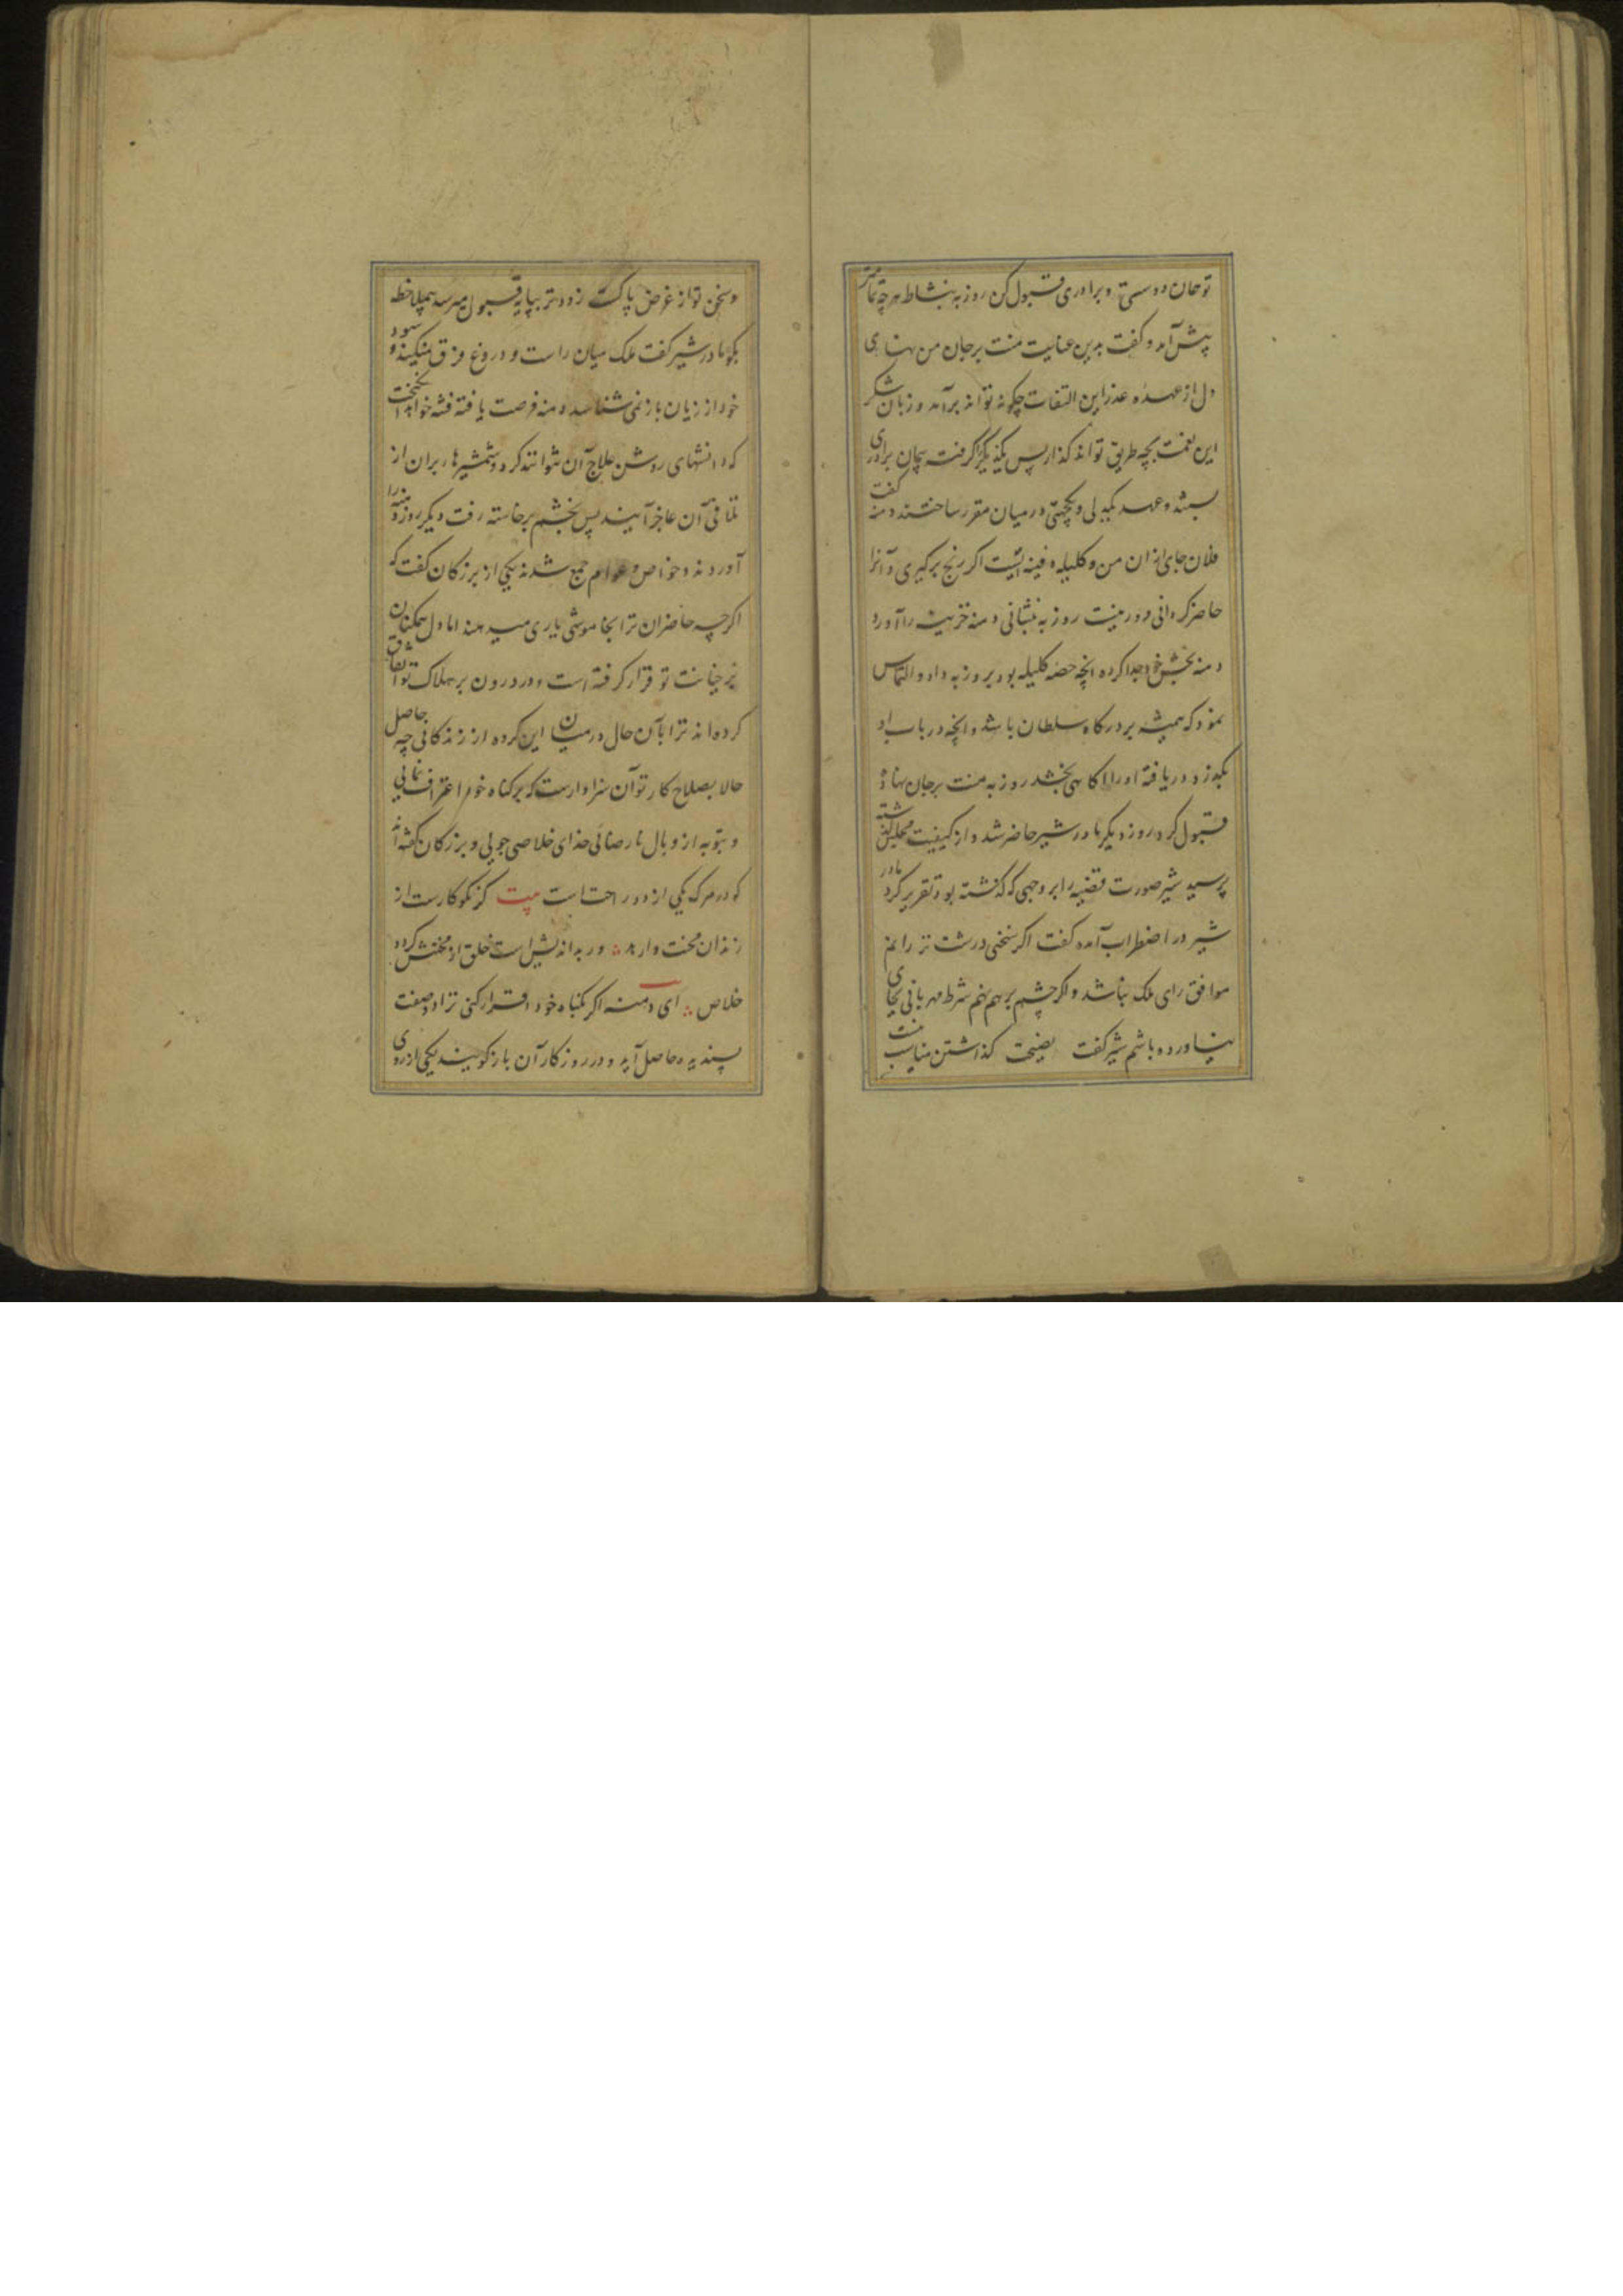 تو همان دوستی و برادری قبول کن روزبه بنشاط هرچه تمامتر
پیش آمد و گفت بدین عنایت منت بر جان من نهادی
دل از عهده عذر این التفات چگونه تواند برآمد و زبان شکر
این نعمت بچه طریق تواند گذارد پس یکدیگر را گرفته پیمان برادری
بستند و عهد یکدلی و یکجهتی در میان مقرر ساختند دمنه گفت
فلان جای از ان من و کلیله دفینه ایست اگر رنج برگیری و آنرا
حاضر کردانی دور نیست روزبه بنشانی دمنه خزینه را آورد
دمنه بخش خود جدا کرده انچه حصه کلیله بود بروزبه داد و التماس
نمود که همیشه بر درگاه سلطان باشد و انچه در باب او
بگذرد دریافته او را اگاهی بخشد روزبه منت بر جان نهاده
قبول کرد روز دیگر مادر شیر حاضر شد و از کیفیت مجلس گذشته
پرسید شیر صورت قضیه را بر وجهی که گذشته بود تقریر کرد مادر
شیر در اضطراب آمده گفت اگر سخنی درشت تر رانم
موافق رای ملک نباشد و اگر چشم بر هم نهم شرط مهربانی بجای
نیاورده باشم شیر گفت نصیحت گذاشتن مناسب نیست
و سخن تو از غرض پاکست زودتر بپایه قبول میرسد بیملاحظه
بگو مادر شیر گفت ملک میان راست و دروغ فرق نمیکند و سود
خود از زیان باز نمی شناسد دمنه فرصت یافته فتنه خواهد انگیخت
که دانشهای روشن علاج آن نتوانند کرد و شمشیرها بران از
تلافی آن عاجز آیند پس بخشم برخاسته رفت دیگر روز دمنه را
آوردند و خواص و عوام جمع شدند یکی از بزرگان گفت که
اگرچه حاضران ترا بخاموشی یاری میدهند اما دل همکنان
بر خیانت تو قرار گرفته است و در درون بر هلاک تو اتفاق
کرده اند ترا با آن حال در میان این گروه از زندگانی چه حاصل
حالا بصلاح کار تو آن سزاوارست که بر گناه خود اعتراف نمائی
و بتوبه از وبال نارضائی خدای خلاصی جویی و بزرگان گفته اند
که در مرگ یکی از دو راحت است بیت گر نکوکارست از
زندان محنت وارهد ور بداندیش است خلق از محنتش گردد
خلاص ای دمنه اگر بگناه خود اقرار کنی ترا دو صفت
پسندیده حاصل آید و در روزگار آن باز گویند یکی از روی